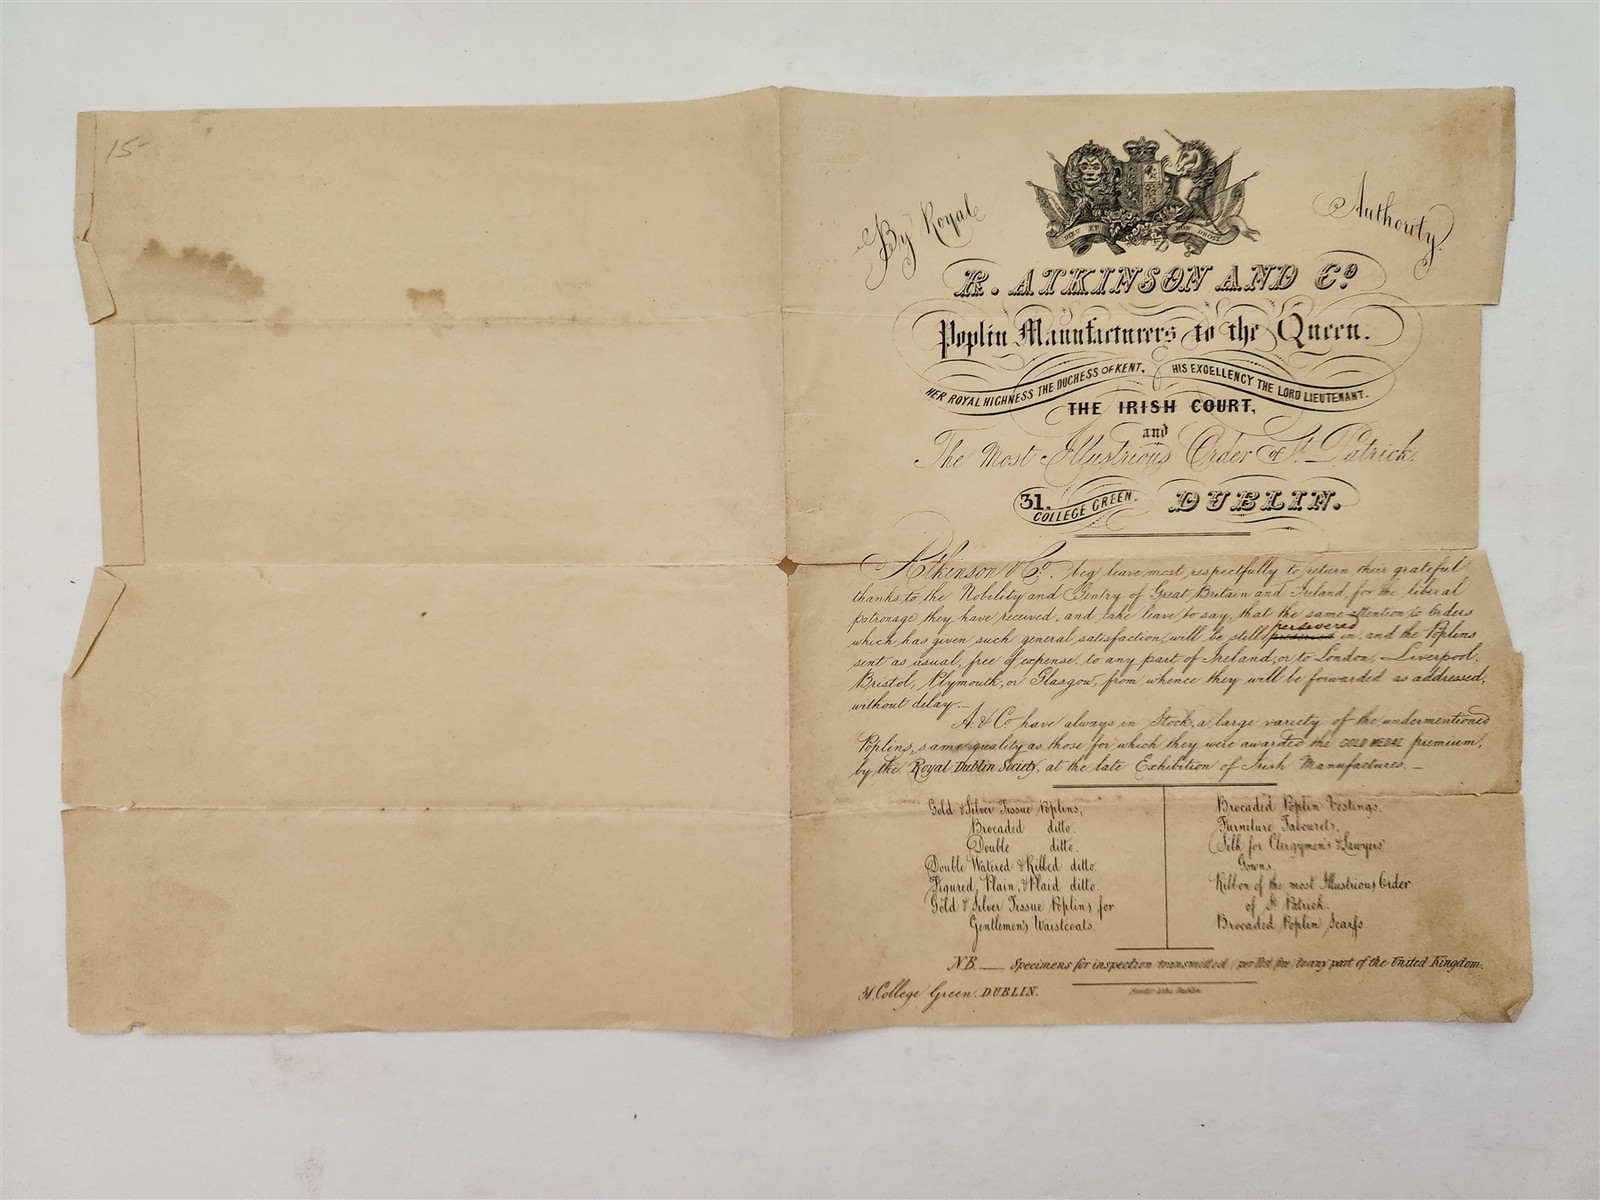 15-
By Royal Authority.
DIEU ET MON DROIT
R. ATKINSON AND Co.
Poplin Manufacturers to the Queen.
HER ROYAL HIGHNESS THE DUCHESS OF KENT, HIS EXCELLENCY THE LORD LIEUTENANT.
THE IRISH COURT,
and
The Most Illustrious Order of St. Patrick.
31, COLLEGE GREEN. DUBLIN.
Atkinson & Co. beg leave most respectfully to return their grateful
thanks to the Nobility and Gentry of Great Britain and Ireland, for the liberal
patronage they have received, and take leave to say, that the same attention to Orders
persevered
which has given such general satisfaction, will be still in, and the Poplins
sent as usual, free of expense, to any part of Ireland, or to London, Liverpool,
Bristol, Plymouth, or Glasgow, from whence they will be forwarded as addressed,
without delay.—
A. & Co. have always in Stock, a large variety of the undermentioned
Poplins, same quality as those for which they were awarded the GOLD MEDAL premium,
by the Royal Dublin Society, at the late Exhibition of Irish Manufactures.—
Gold & Silver Tissue Poplins,
Brocaded ditto.
Double ditto.
Double Watered & Ribbed ditto.
Figured, Plain, & Plaid ditto.
Gold & Silver Tissue Poplins for
Gentlemen's Waistcoats.
Brocaded Poplin Vestings.
Furniture Tabourets.
Silk for Clergymen's & Lawyers'
Gowns.
Ribbon of the most Illustrious Order
of St. Patrick.
Brocaded Poplin Scarfs
N.B.— Specimens for inspection transmitted per Post free to any part of the United Kingdom.
31, College Green, DUBLIN.